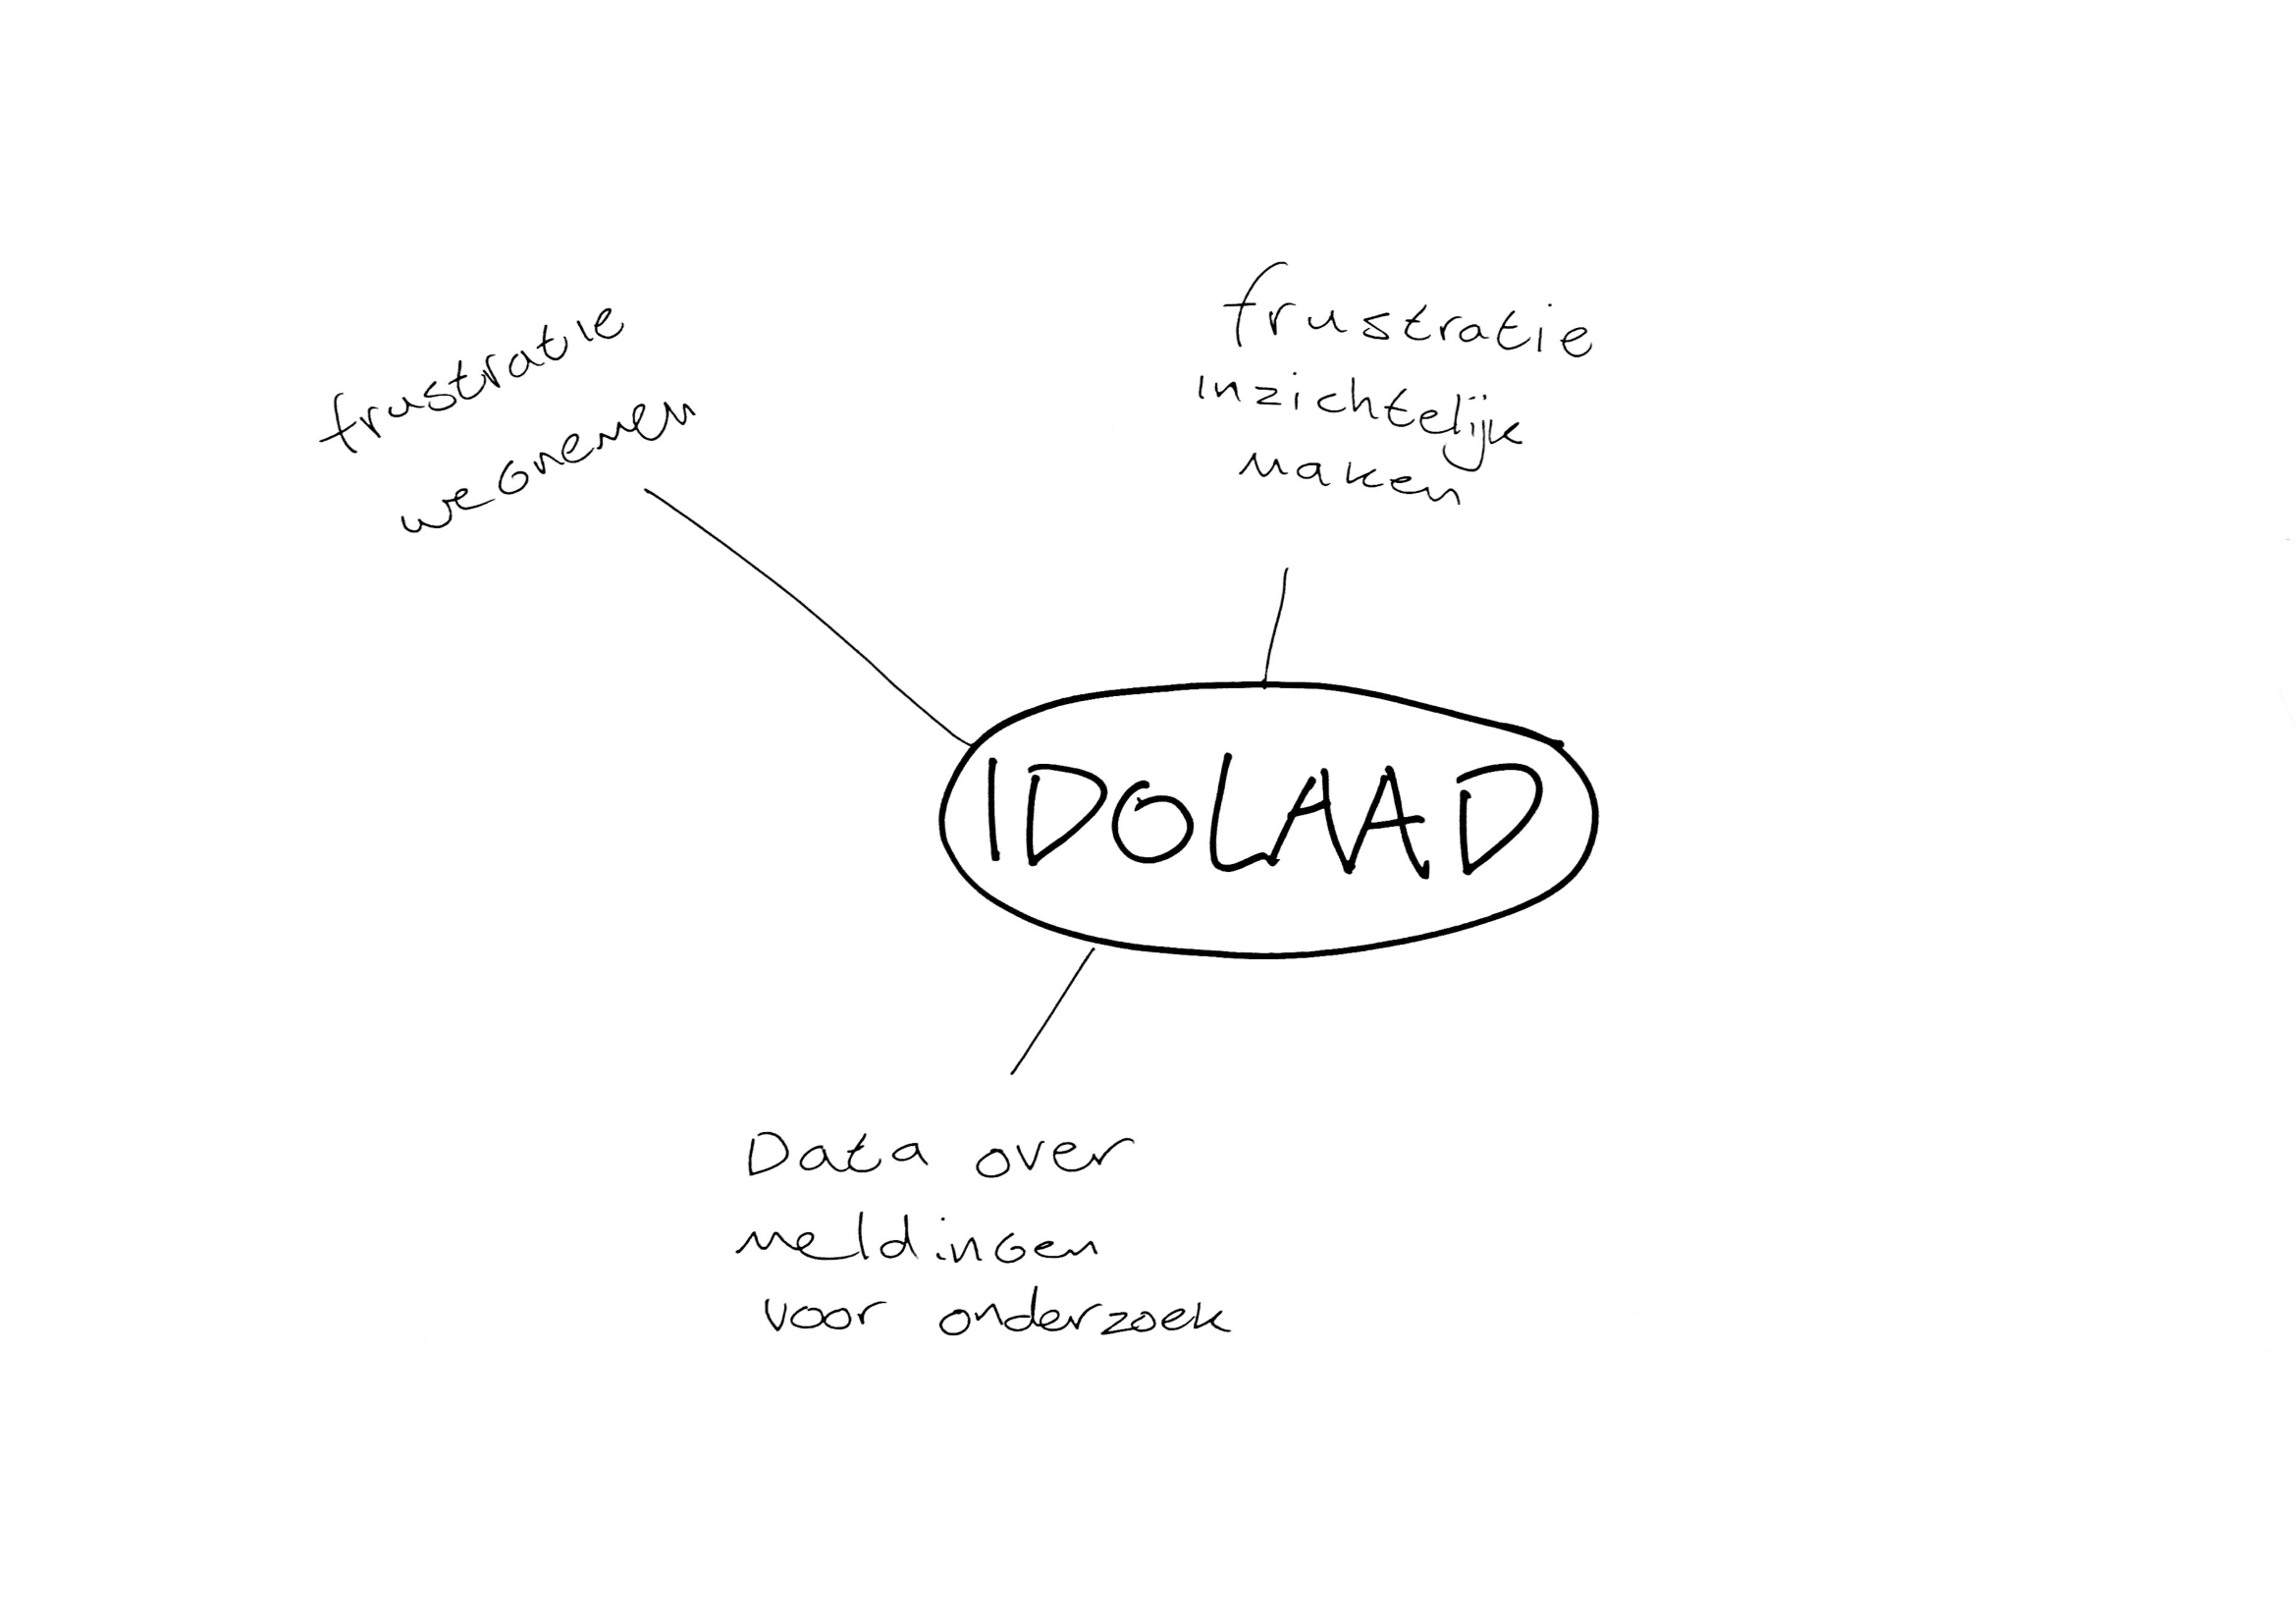 frustratie
wegnemen
frustratie
inzichtelijk
maken
IDOLAAD
Data over
meldingen
voor onderzoek